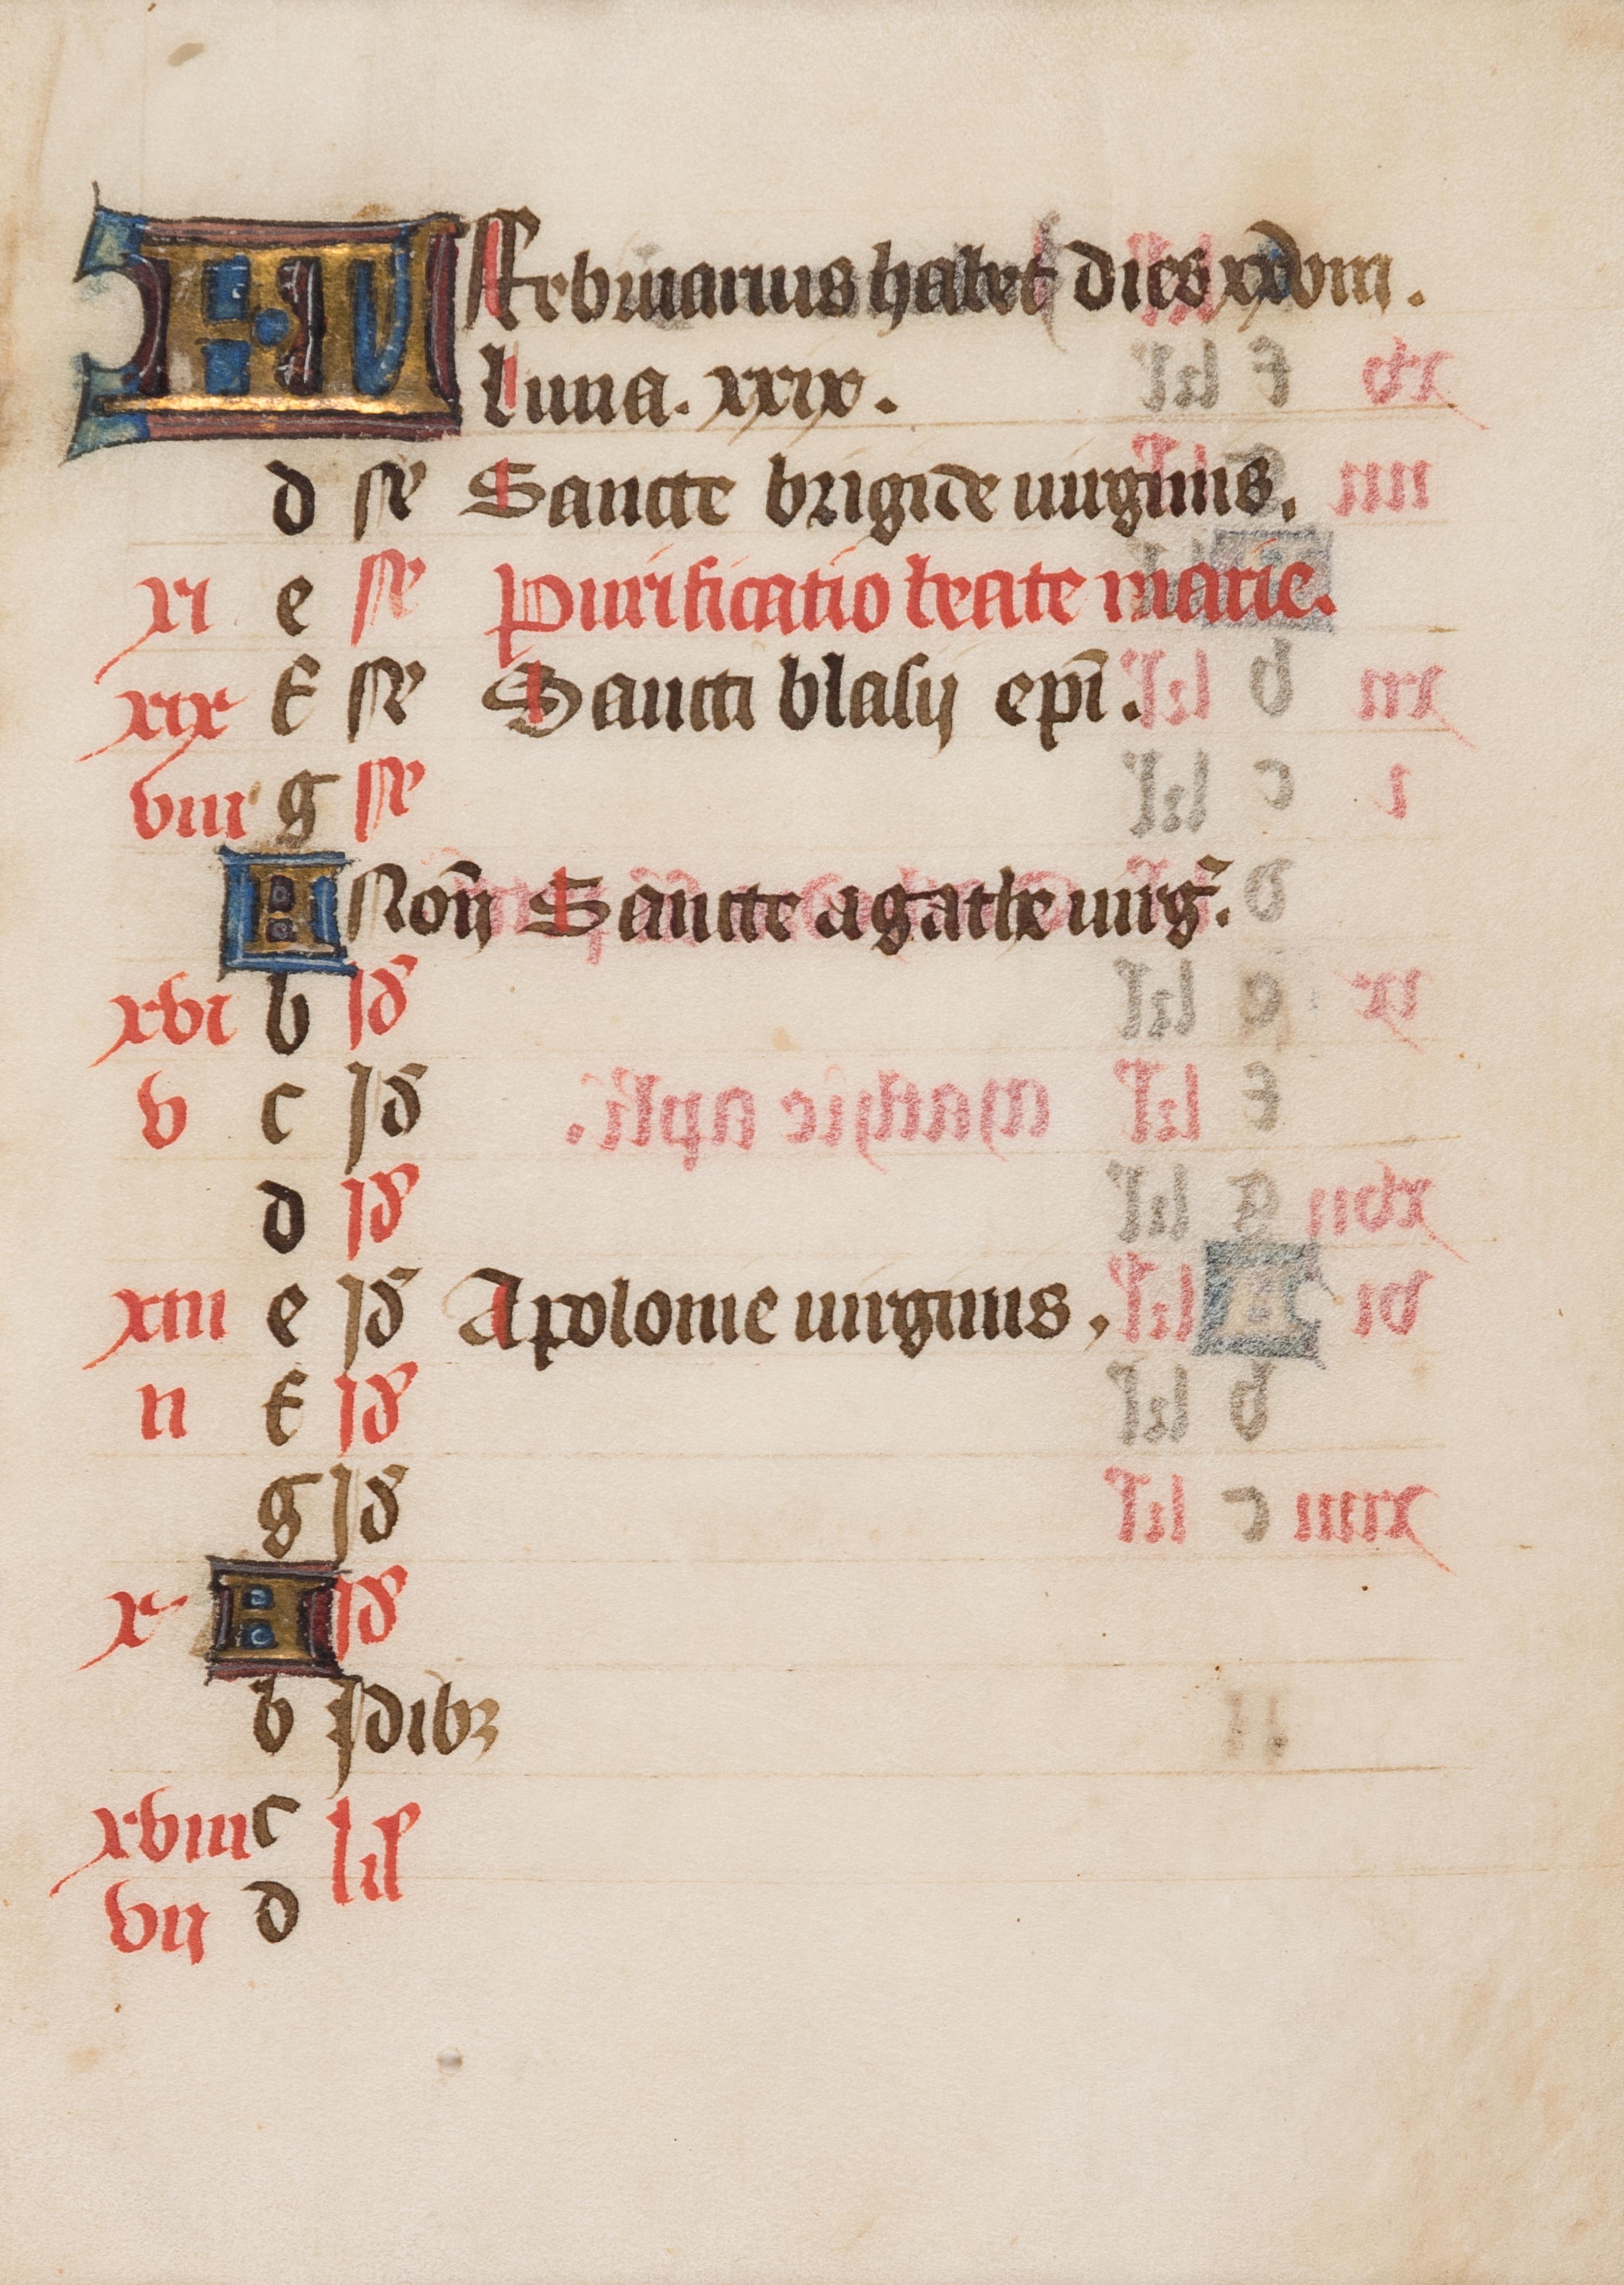 KL Februarius habet dies xxviii.
Luna. xxix.
d Sancte brigide uirginis.
xi e Purificatio beate marie.
xix f Sancti blasij ep̄i.
viii g
A Non̄ Sancte agathe uirg̃.
xvi b Id
v c Id
d Id
xiii e Id Apolonie uirginis.
ii f Id
g Id
x A Id
b Idibꝫ
xviii c kl
vii d